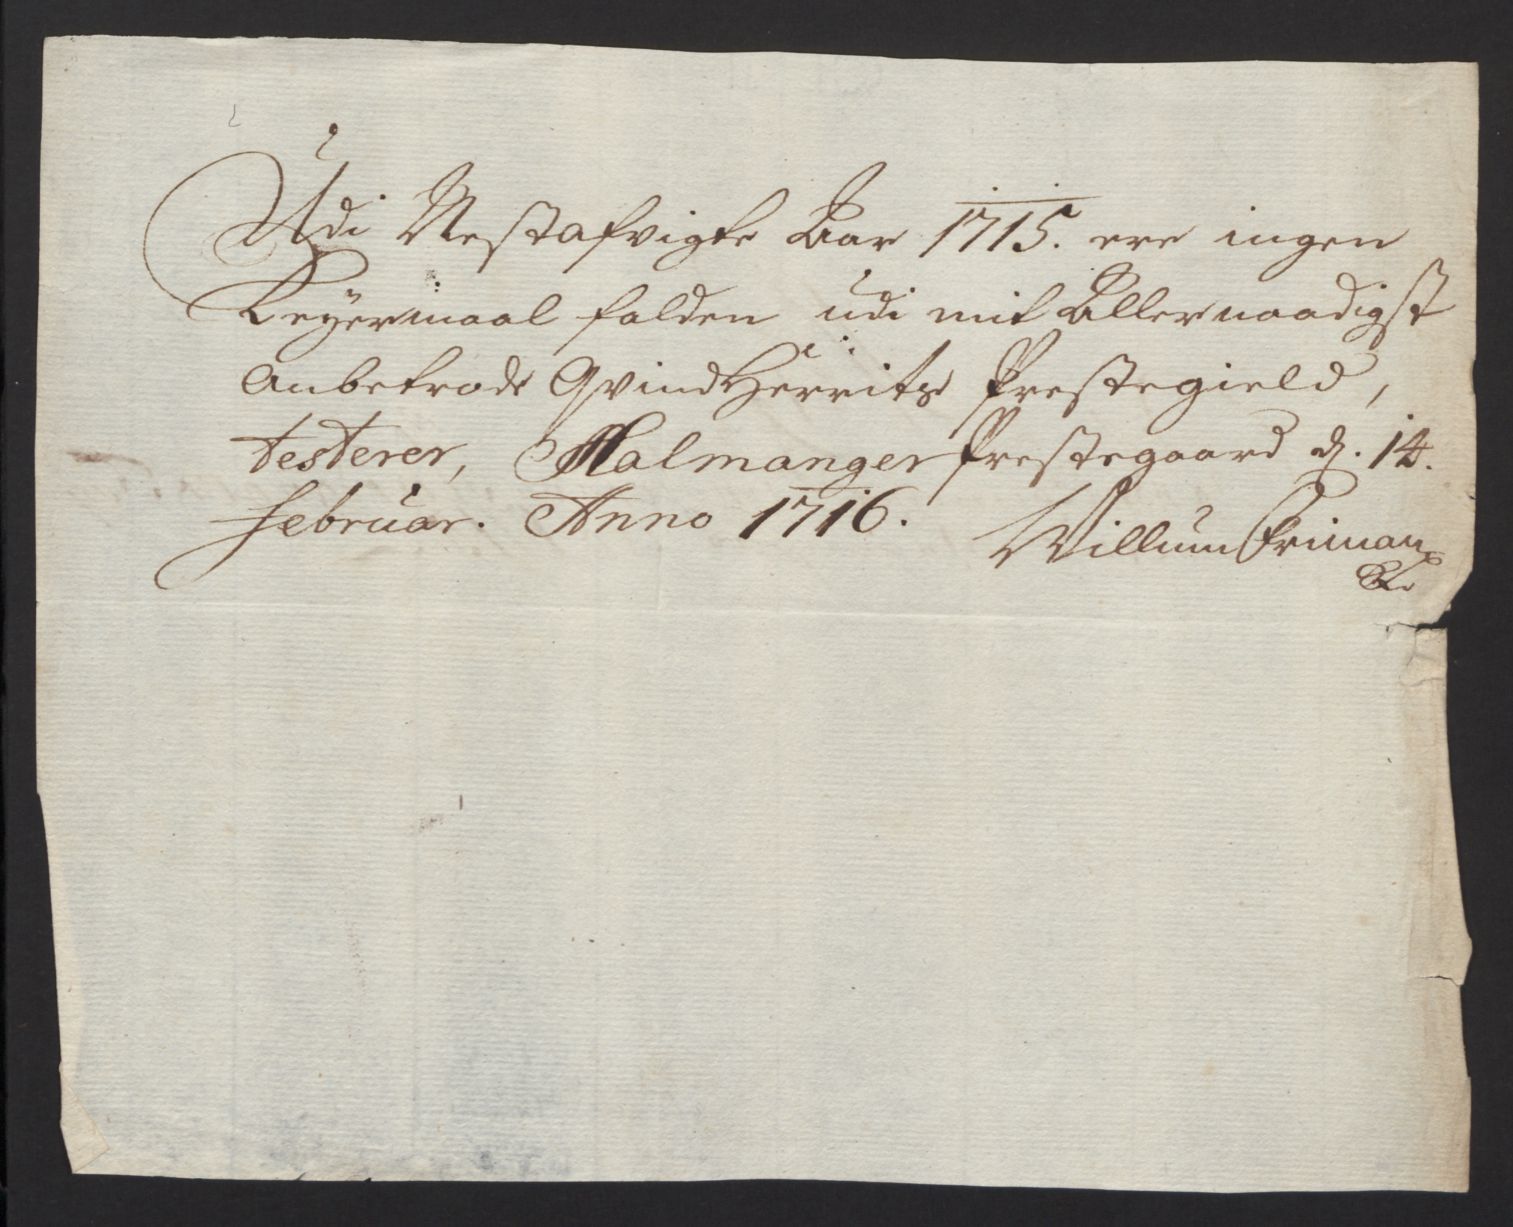 Udi Nestafvigte Aar 1715. ere ingen
Leÿermaal falden udi mit Allernaadigst
Anbetrode Qvindherrits Prestegield,
testerer, Malmanger Prestegaard d. 14.
Februar. Anno 1716. Willum Friman